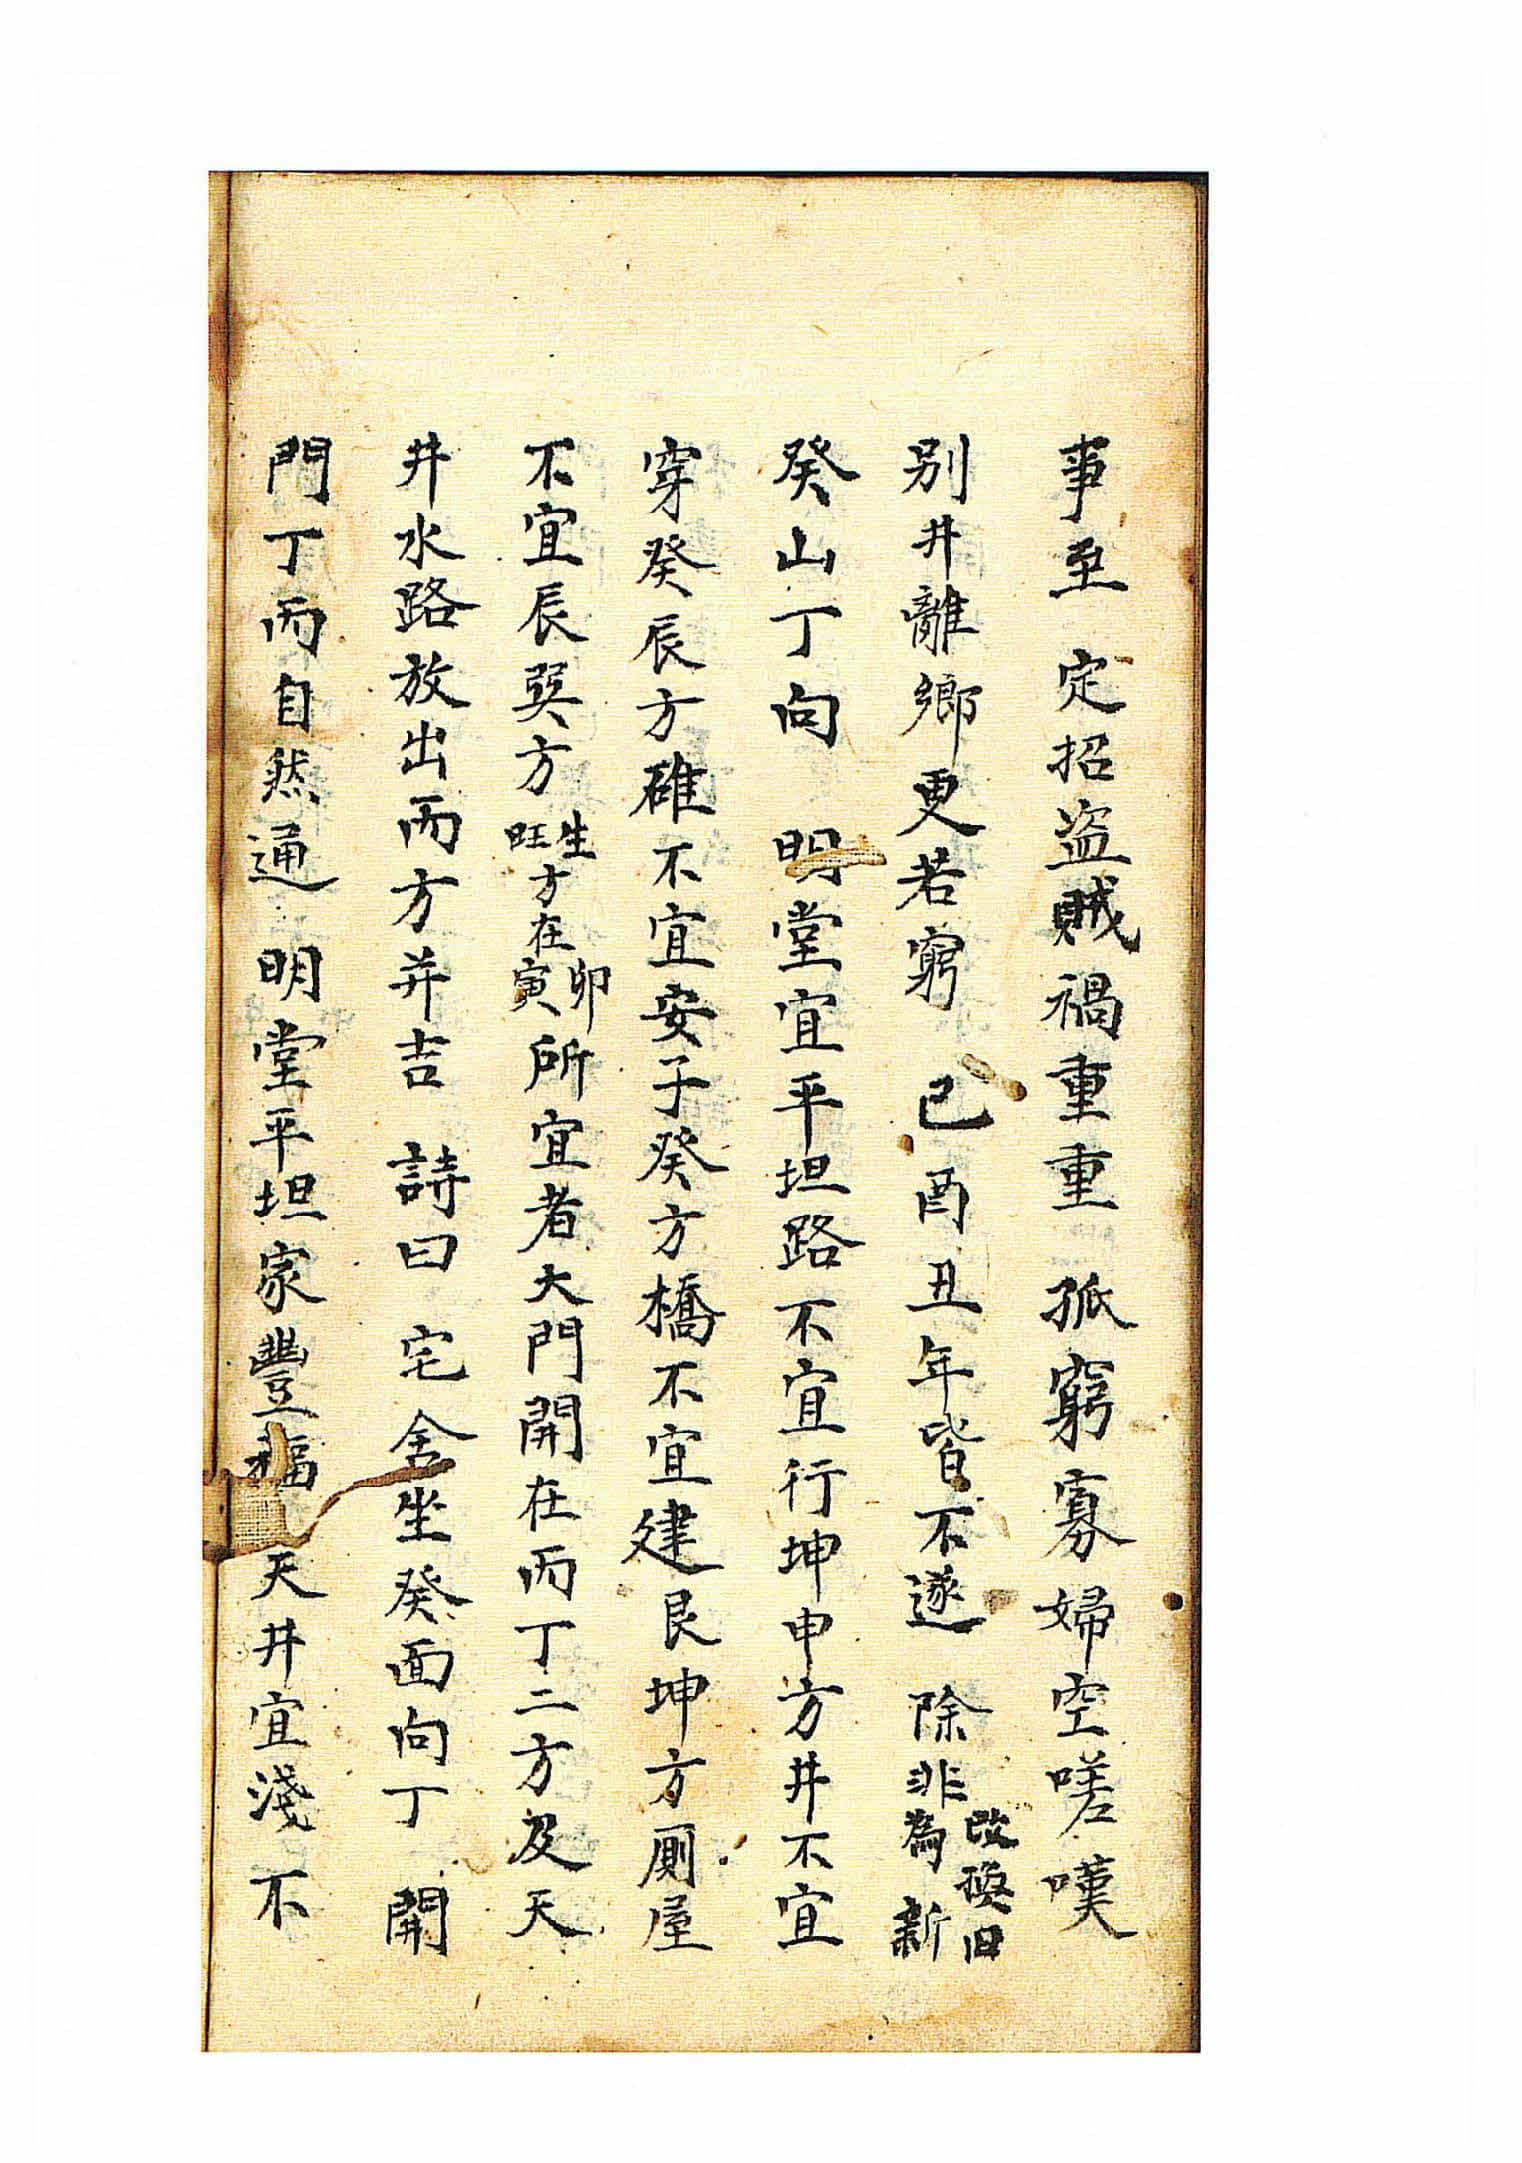 事至 定招盗賊禍重重 孤窮寡婦空嗟嘆
別井離鄉更若窮 己酉丑年皆不遂 除非改換旧為新
癸山丁向 明堂宜平坦路不宜行坤申方井不宜
穿癸辰方碓不宜安子癸方橋不宜建艮坤方厠屋
不宜辰巽方生旺方在卯寅所宜者大門開在丙丁二方及天
井水路放出丙方并吉 詩曰 宅舍坐癸面向丁 開
門丁丙自然通 明堂平坦家豐福 天井宜淺不